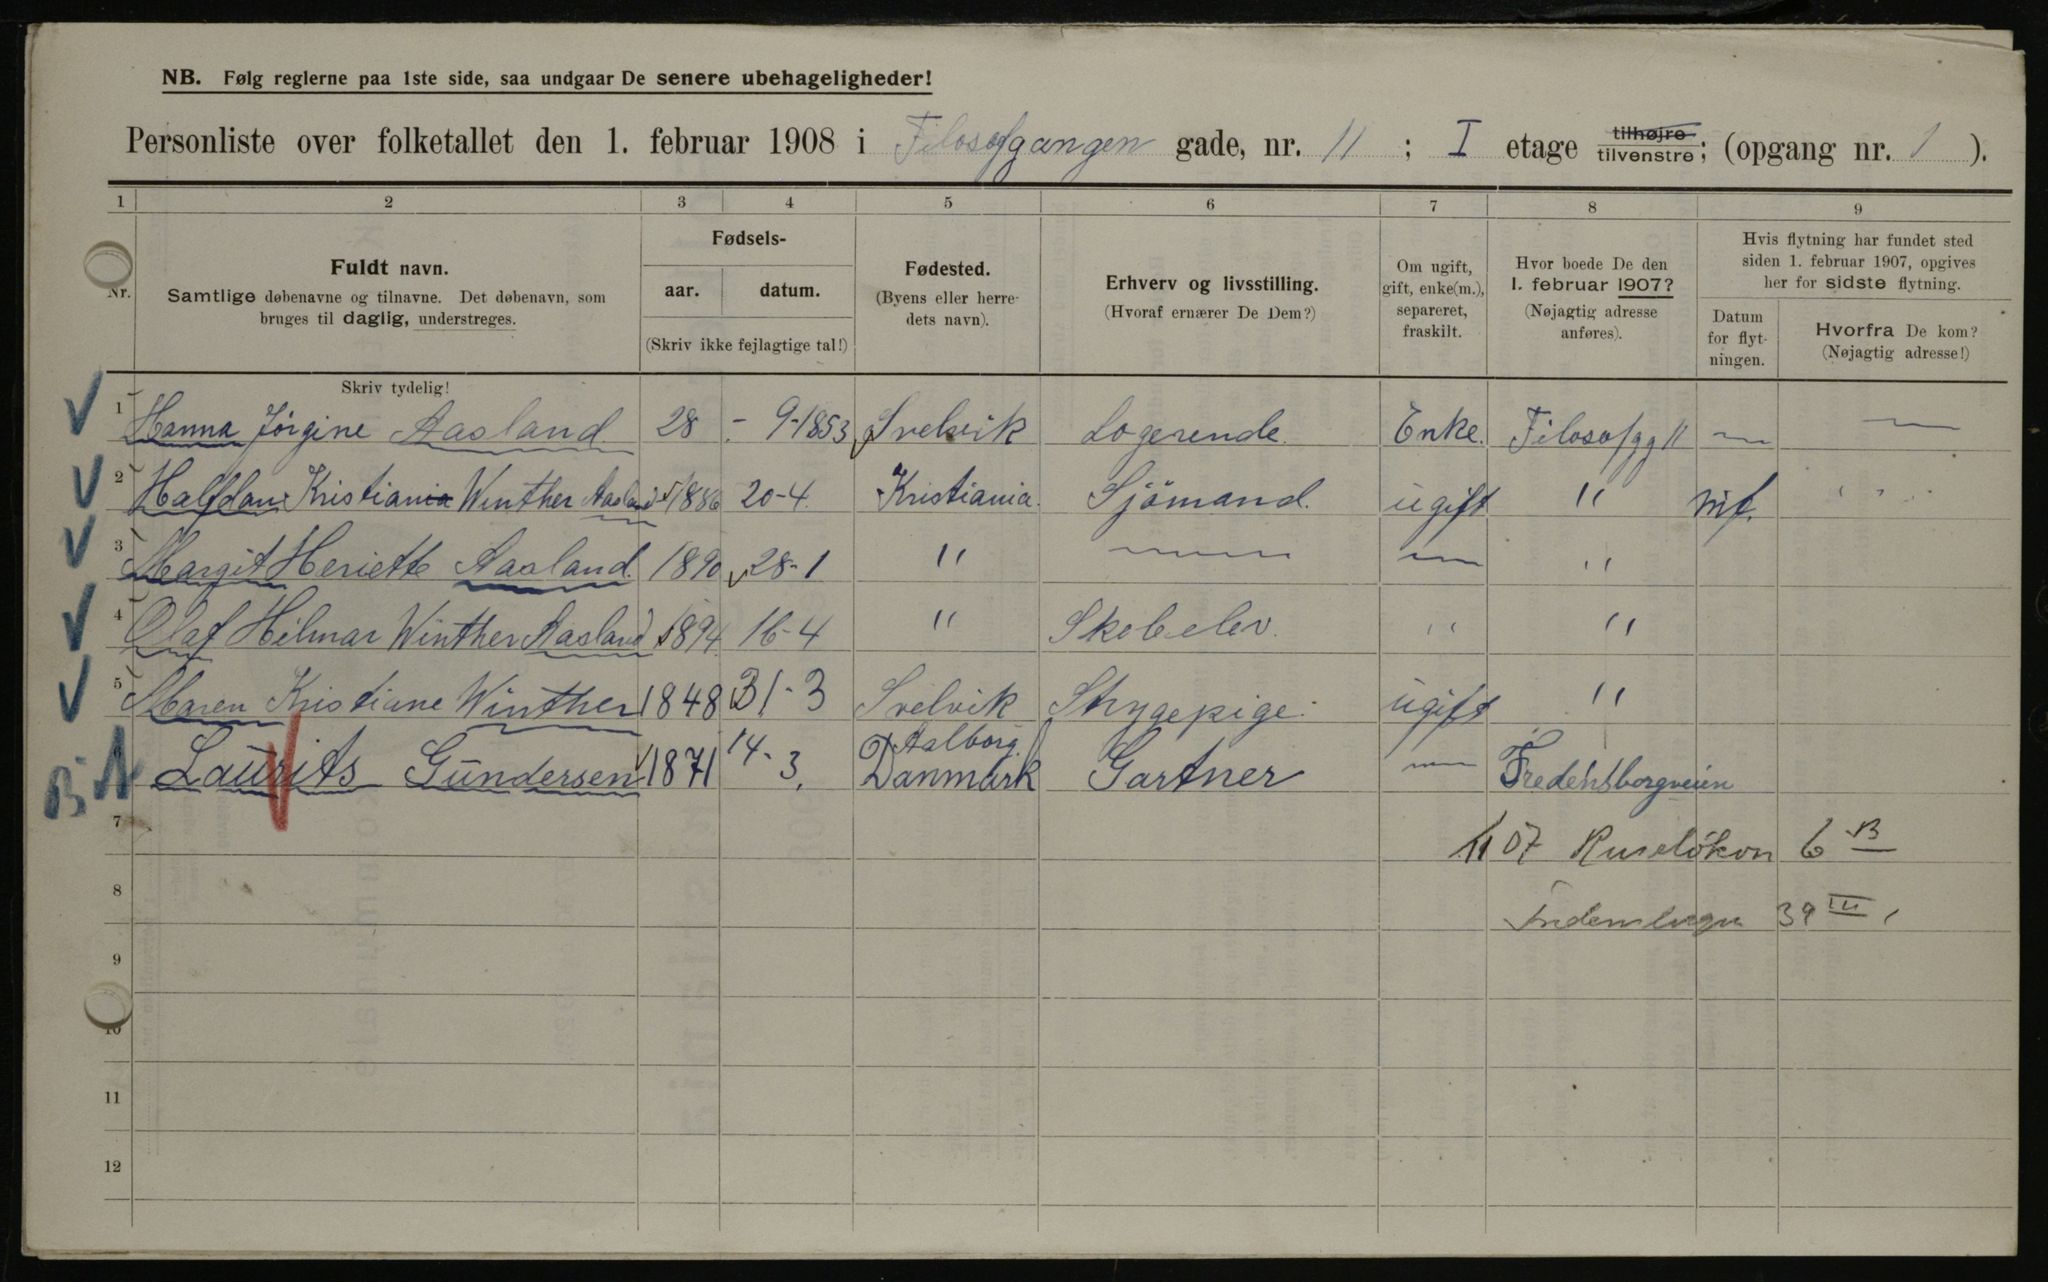 NB. Følg reglerne paa 1ste side, saa undgaar De senere ubehageligheder!
Personliste over folketallet den 1. februar 1908 i Filosofgangen gade, nr. 11 ; I etage tilhøjre tilvenstre; (opgang nr. 1 ).
1 2 3 4 5 6 7 8 9
Nr.
Fuldt navn.
Samtlige døbenavne og tilnavne. Det døbenavn, som
bruges til daglig, understreges.
Skriv tydelig!
Fødsels-
aar. datum.
(Skriv ikke fejlagtige tal!)
Fødested.
(Byens eller herre-
dets navn).
Erhverv og livsstilling.
(Hvoraf ernærer De Dem?)
Om ugift,
gift, enke(m.),
separeret,
fraskilt.
Hvor boede De den
1. februar 1907?
(Nøjagtig adresse
anføres).
Hvis flytning har fundet sted
siden 1. februar 1907, opgives
her for sidste flytning.
Datum
for flyt-
ningen.
Hvorfra De kom?
(Nøjagtig adresse!)
1 Hanna Jørgine Aasland 28 - 9-1853 Svelvik Logerende. Enke. Filosofgg 11 — —
2 Halfdan Kristiania Winther Aasland 1886 20-4 Kristiania. Sjömand. ugift " mf. "
3 Margit Heriette Aasland. 1890 28-1 " — — "
4 Olaf Hilmar Winther Aasland 1894 16-4 " Skoleelev. " "
5 Maren Kristiane Winther 1848 31-3 Svelvik Strygepige. ugift "
6 Laurits Gundersen 1871 14-3. Aalborg Danmark Gartner — Fredensborgveien
7 11 07 Ruseløkvn 6 B
8 39 III
9
10
11
12